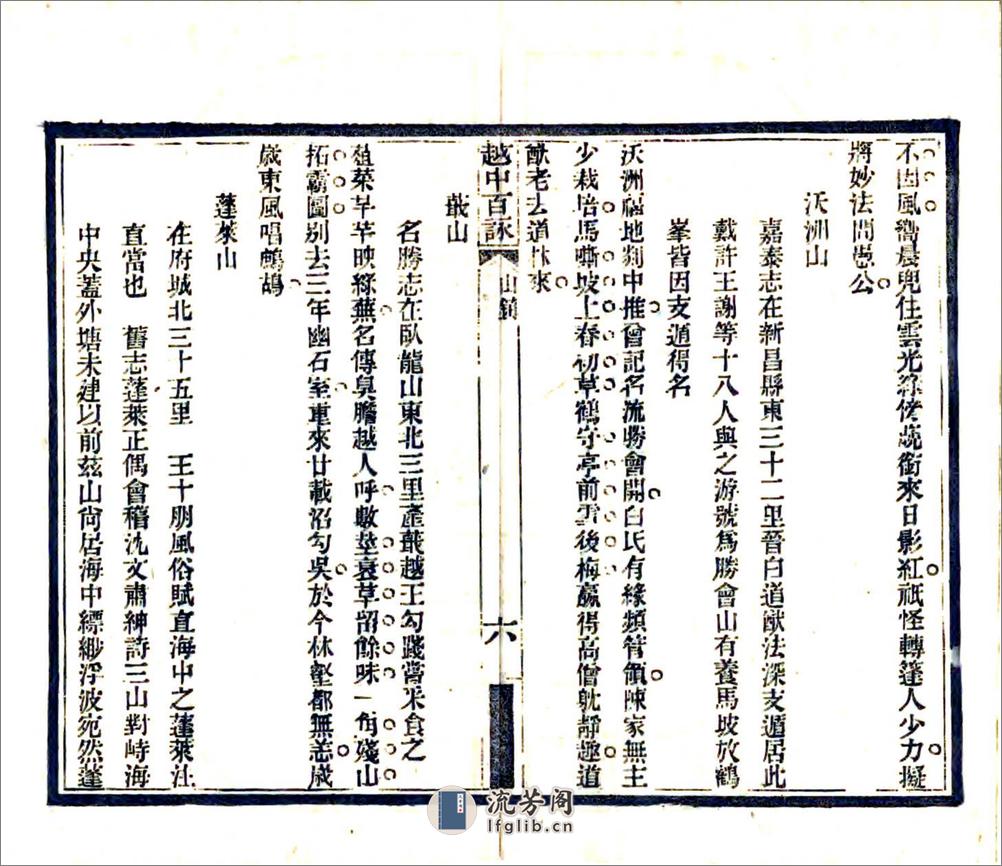 不因風響晨兜住雲光綠倦疏銜來日影紅祇怪轉篷人少力擬
將妙法問愚公
沃洲山
嘉泰志在新昌縣東三十二里晉白道猷法深支遁居此
戴許王謝等十八人與之游號爲勝會山有養馬坡放鶴
峯皆因支遁得名
沃洲福地剡中推曾記名流勝會開白氏有緣頻管領陳家無主
少栽培馬嘶坡上春初草鶴守亭前雪後梅贏得高僧躭靜趣道
猷老去道林來
越中百詠 山鎭 六
蕺山
名勝志在臥龍山東北三里產蕺越王勾踐嘗采食之
葅菜芊芊映綠蕪名傳臭膽越人呼數莖衰草留餘味一角殘山
拓霸圖别去三年幽石室重來廿載沼勾吳於今林壑都無恙歲
歲東風唱鷓鴣
蓬萊山
在府城北三十五里 王十朋風俗賦直海中之蓬萊注
直當也 舊志蓬萊正偶會稽沈文肅紳詩三山對峙海
中央蓋外塘未建以前茲山尙居海中縹緲浮波宛然蓬
流芳阁
lfglib.cn